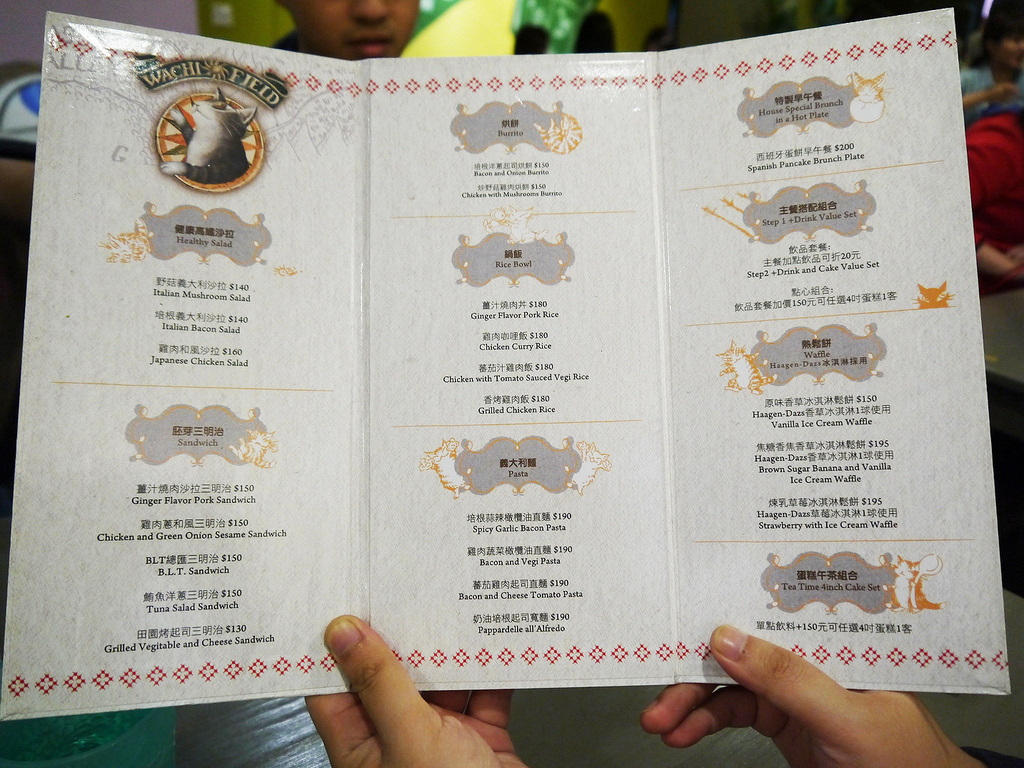 WACHIFIELD
健康高纖沙拉
Healthy Salad
野菇義大利沙拉 $140
Italian Mushroom Salad
培根義大利沙拉 $140
Italian Bacon Salad
雞肉和風沙拉 $160
Japanese Chicken Salad
胚芽三明治
Sandwich
薑汁燒肉沙拉三明治 $150
Ginger Flavor Pork Sandwich
雞肉蔥和風三明治 $150
Chicken and Green Onion Sesame Sandwich
BLT總匯三明治 $150
B.L.T. Sandwich
鮪魚洋蔥三明治 $150
Tuna Salad Sandwich
田園烤起司三明治 $130
Grilled Vegitable and Cheese Sandwich
烘餅
Burrito
培根洋蔥起司烘餅 $150
Bacon and Onion Burrito
炒野菇雞肉烘餅 $150
Chicken with Mushrooms Burrito
鍋飯
Rice Bowl
薑汁燒肉丼 $180
Ginger Flavor Pork Rice
雞肉咖哩飯 $180
Chicken Curry Rice
蕃茄汁雞肉飯 $180
Chicken with Tomato Sauced Vegi Rice
香烤雞肉飯 $180
Grilled Chicken Rice
義大利麵
Pasta
培根蒜辣橄欖油直麵 $190
Spicy Garlic Bacon Pasta
雞肉蔬菜橄欖油直麵 $190
Bacon and Vegi Pasta
蕃茄雞肉起司直麵 $190
Bacon and Cheese Tomato Pasta
奶油培根起司寬麵 $190
Pappardelle all'Alfredo
特製早午餐
House Special Brunch
in a Hot Plate
西班牙蛋餅早午餐 $200
Spanish Pancake Brunch Plate
主餐搭配組合
Step 1 +Drink Value Set
飲品套餐:
主餐加點飲品可折20元
Step2 +Drink and Cake Value Set
點心組合:
飲品套餐加價150元可任選4吋蛋糕1客
熱鬆餅
Waffle
Haagen-Dazs冰淇淋採用
原味香草冰淇淋鬆餅 $150
Haagen-Dazs香草冰淇淋1球使用
Vanilla Ice Cream Waffle
焦糖香蕉香草冰淇淋鬆餅 $195
Haagen-Dazs香草冰淇淋1球使用
Brown Sugar Banana and Vanilla
Ice Cream Waffle
煉乳草莓冰淇淋鬆餅 $195
Haagen-Dazs草莓冰淇淋1球使用
Strawberry with Ice Cream Waffle
蛋糕午茶組合
Tea Time 4inch Cake Set
單點飲料+150元可任選4吋蛋糕1客